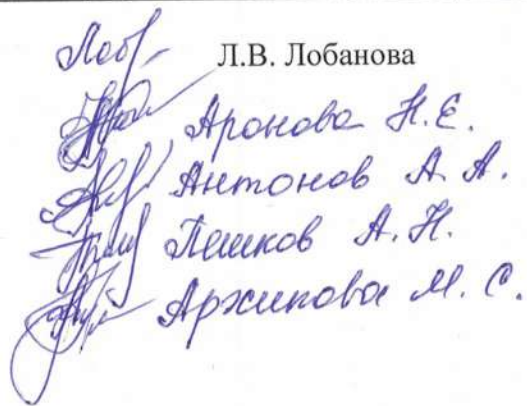 Л.В. Лобанова
Аронова Н.Е.
Антонов А.А.
Пешков А.Н.
Архипова М.С.